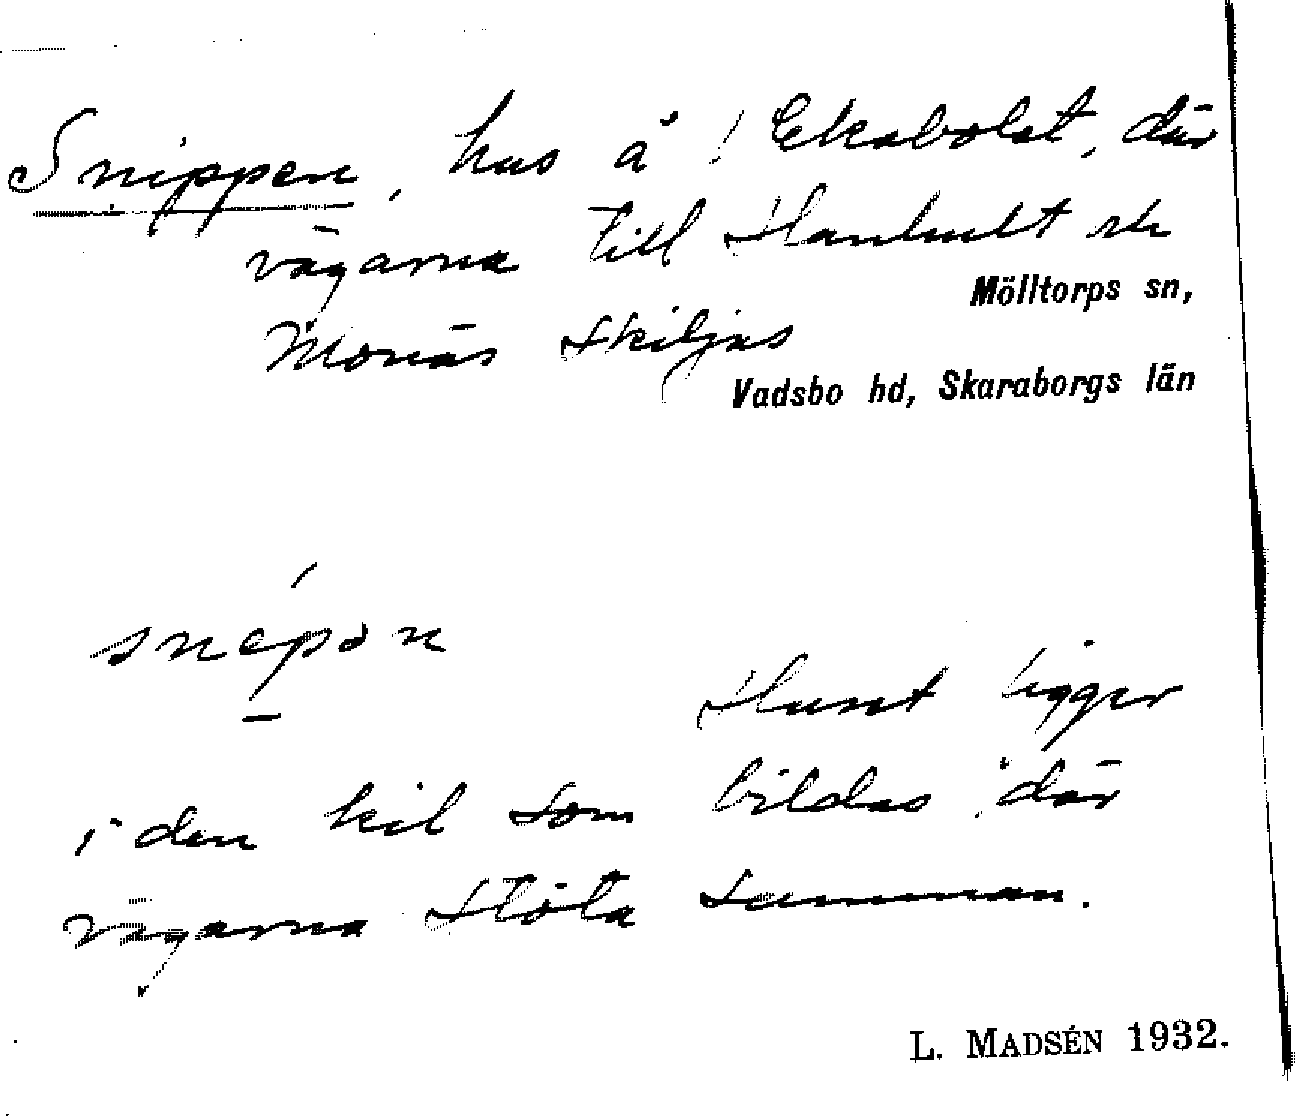 Snippen, hus å Ekabolet, där
vägarna till Hanhult och
Mölltorps sn,
Monäs skiljas
Vadsbo hd, Skaraborgs län
snépən
Huset ligger
i den kil som bildas där
vägarna stöta samman.
L. MADSÉN 1932.